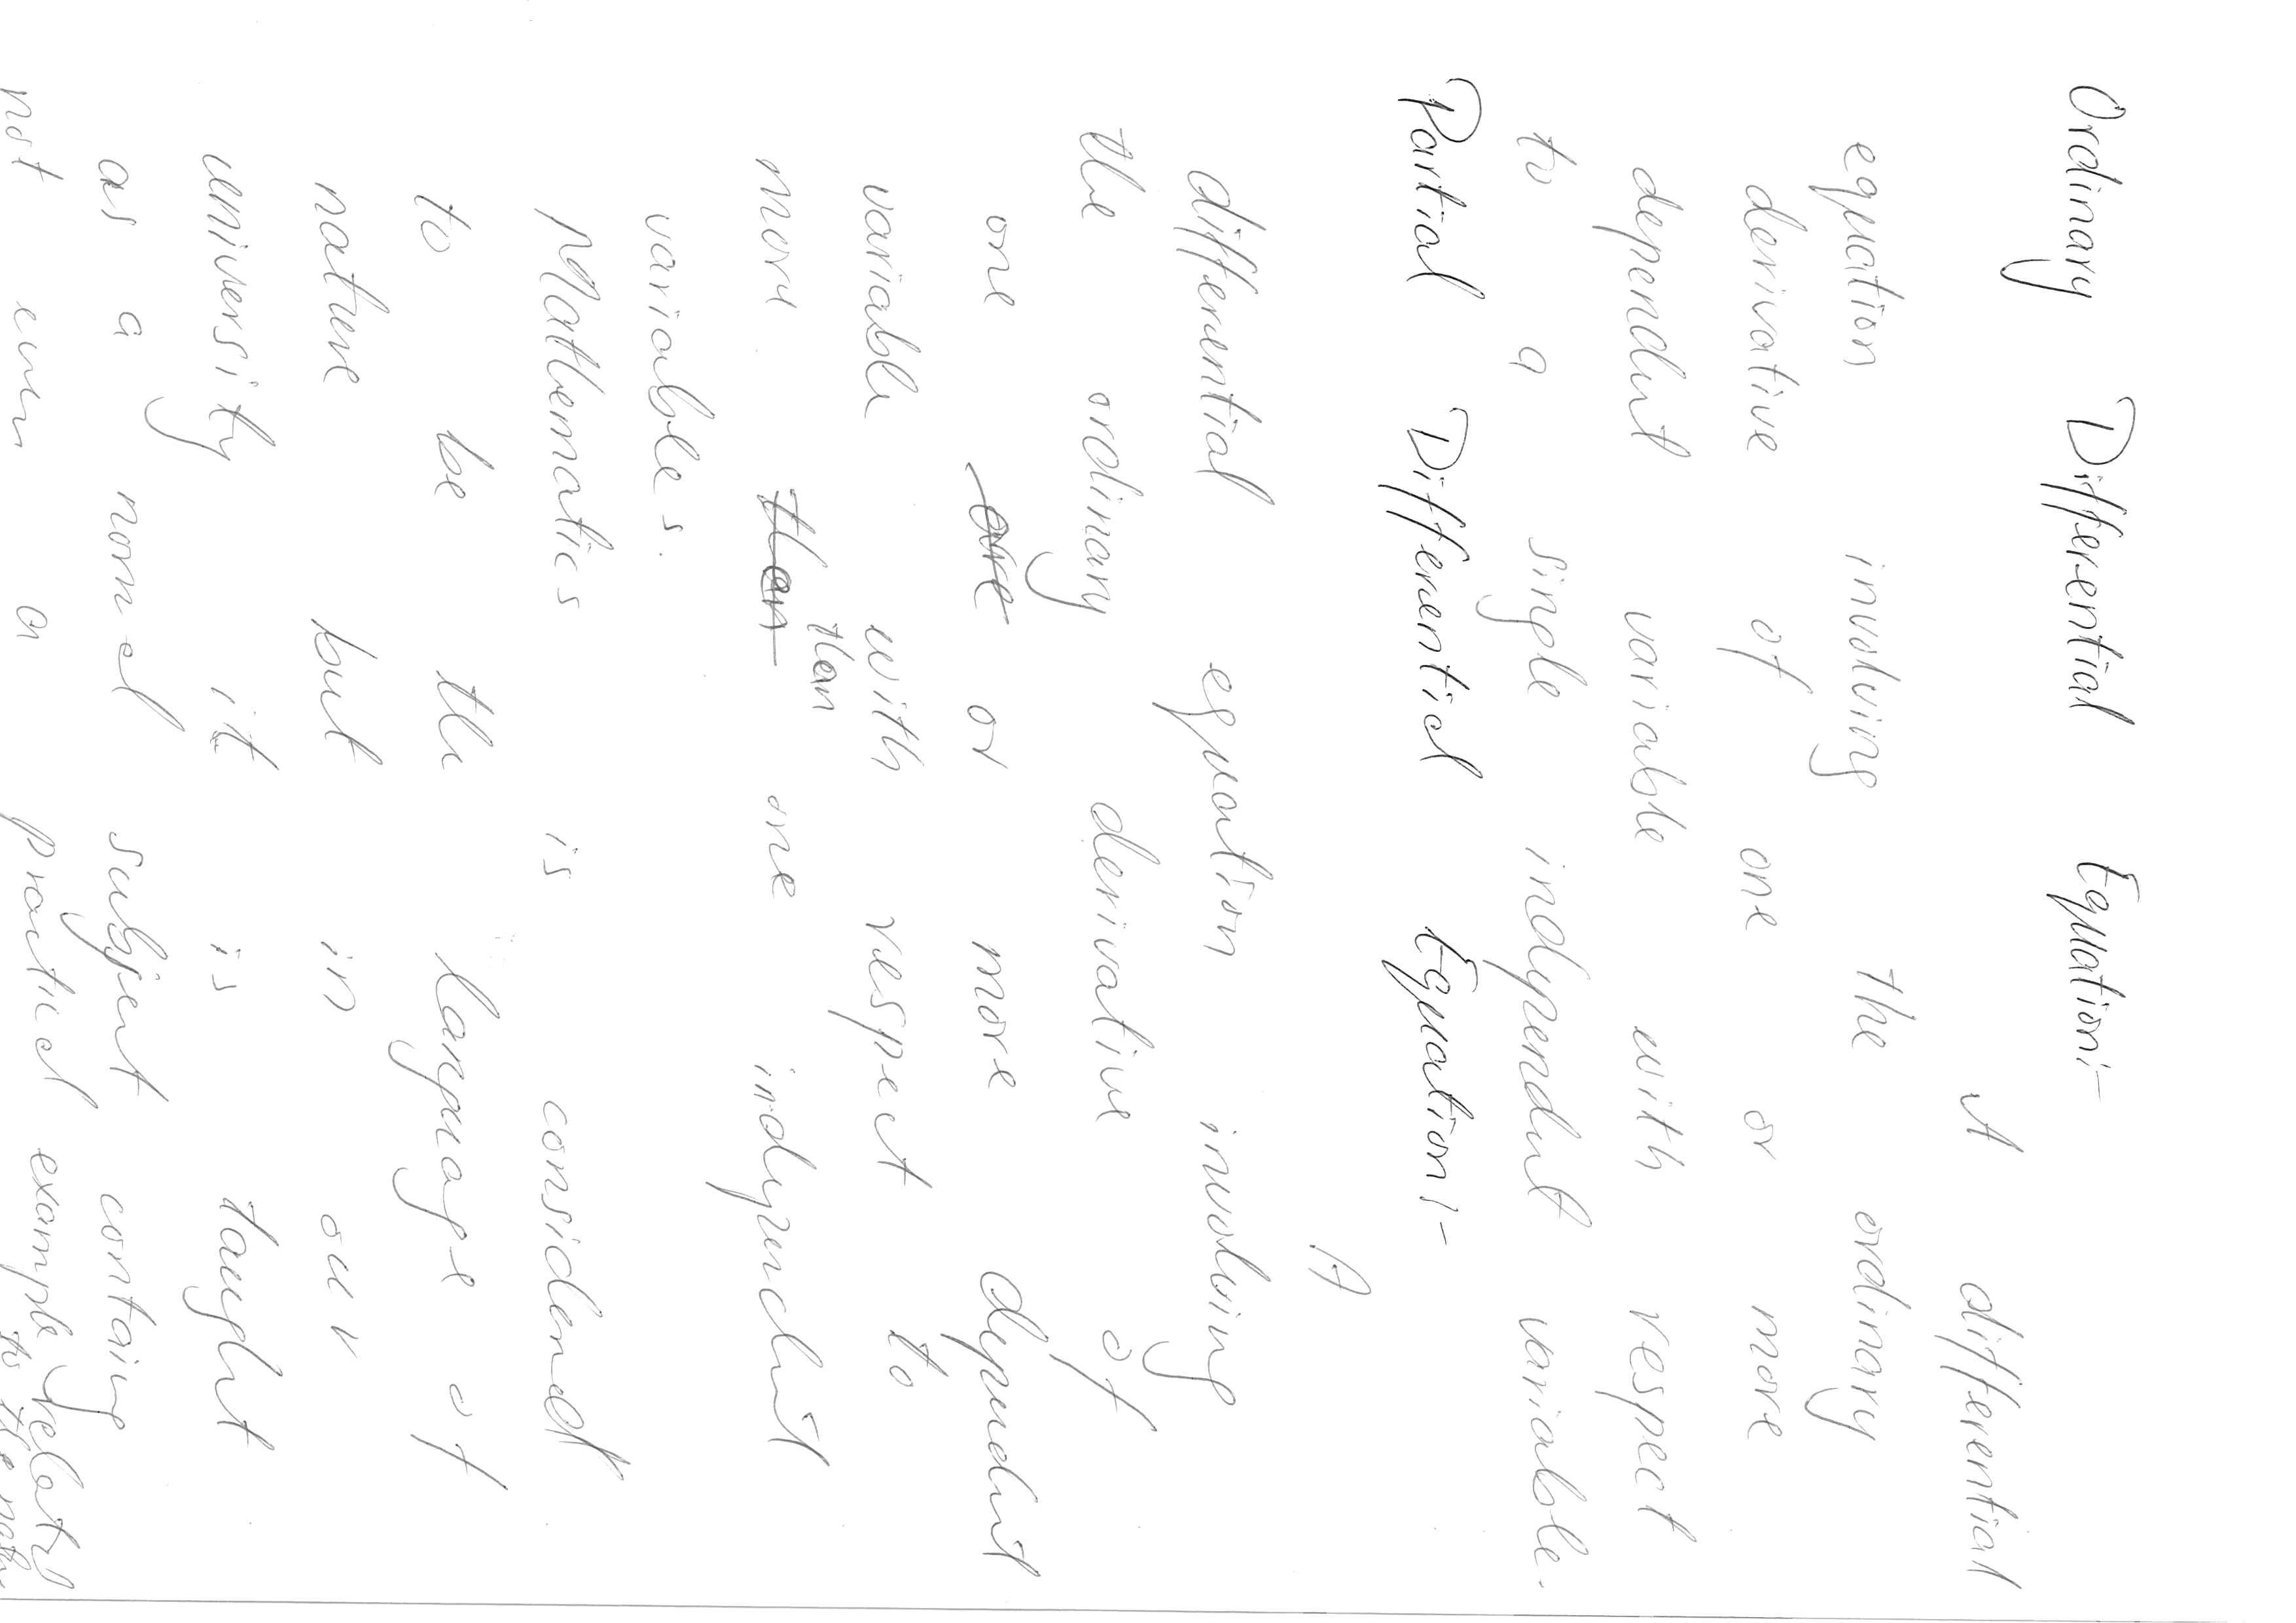 Ordinary Differential Equation:-
A differential
equation involving the ordinary
derivative of one or more
dependent variable with respect
to a single independent variable.
Partial Differential Equation:-
A
differential equation involving
the ordinary derivative of
one are or more dependent
variable with respect to
than
more than one independent
variables.
Mathematics is considered
to be the language of
nature but in our
university it is taught
as a normal subject containg
not even a practical example related
to the natu